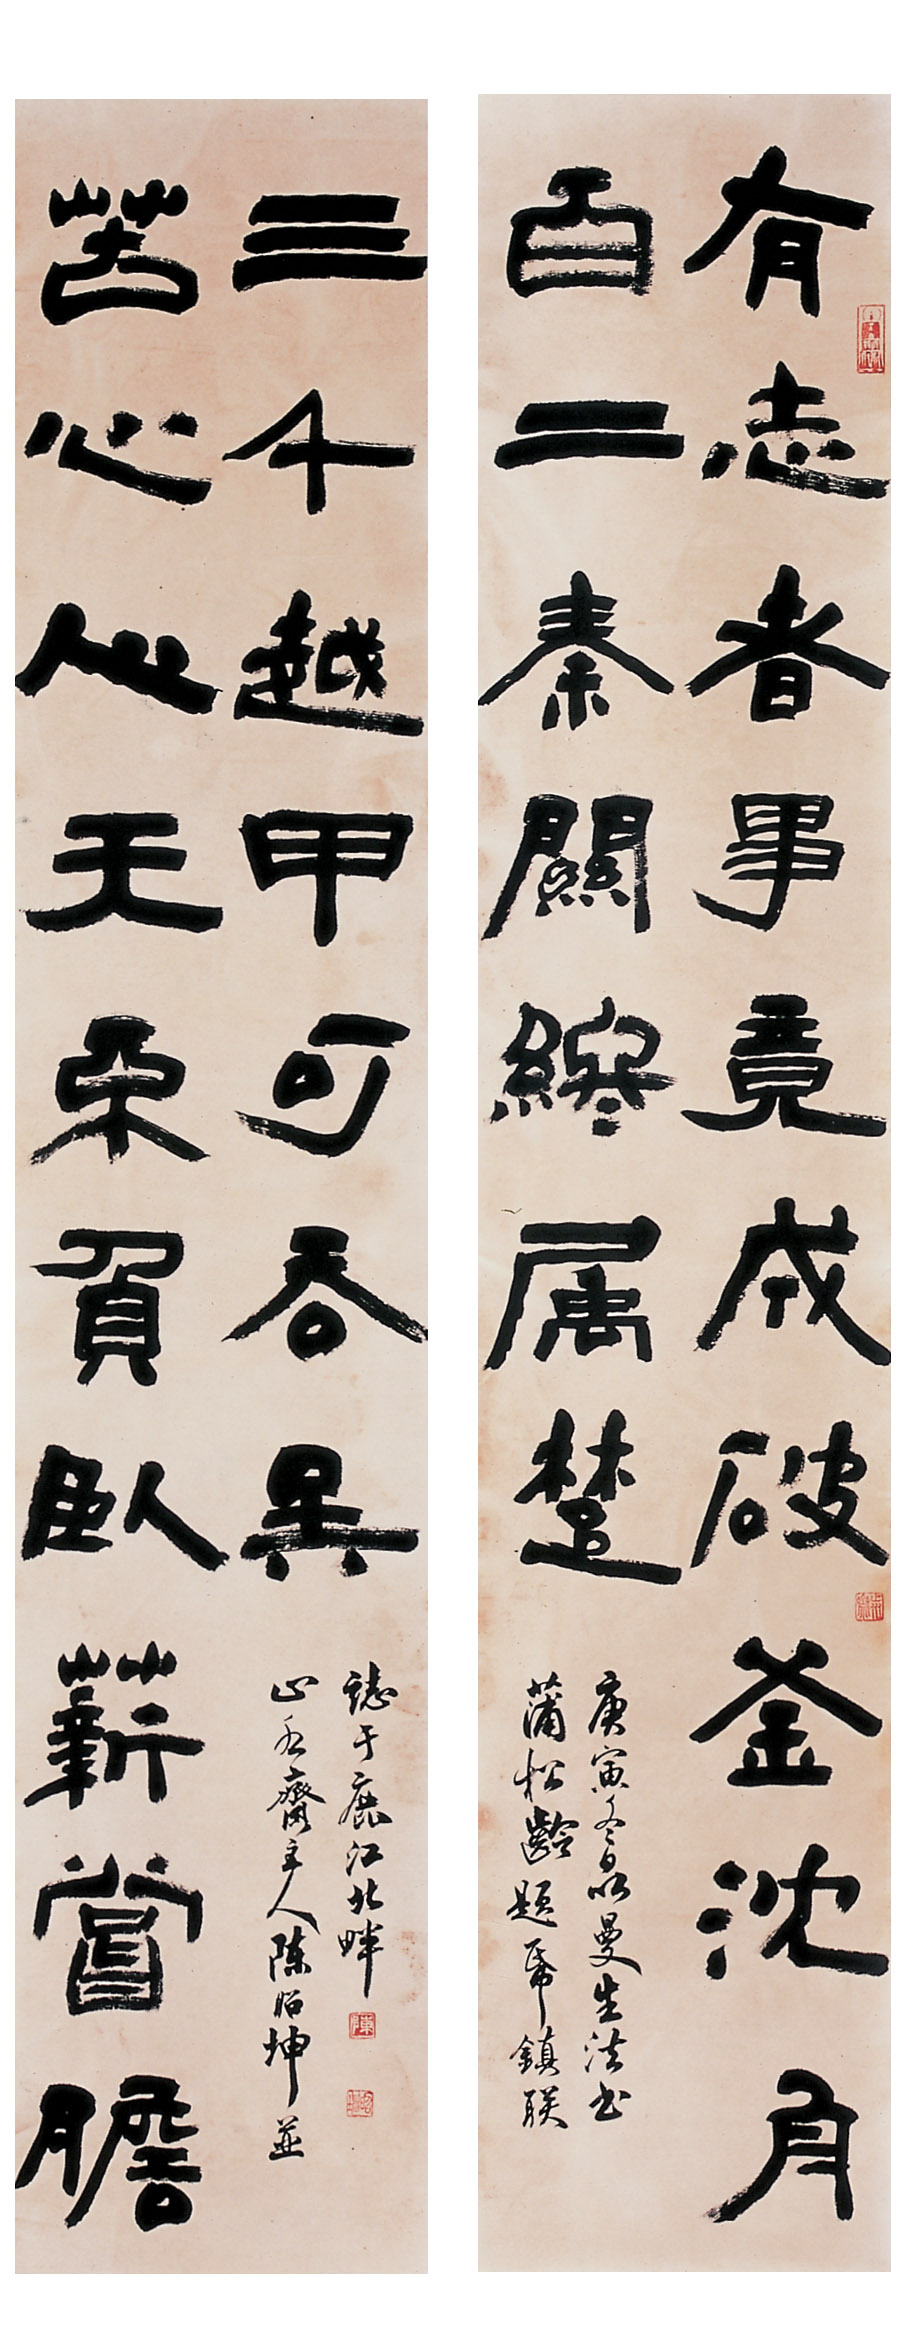 有志者事竟成破釜沈舟
百二秦關終属楚
庚寅冬日以曼生法书
蒲松齡題帋鎮联
苦心人天不負臥薪嘗膽
三千越甲可吞吳
齋主人陳昭坤並
誌于鹿江北畔